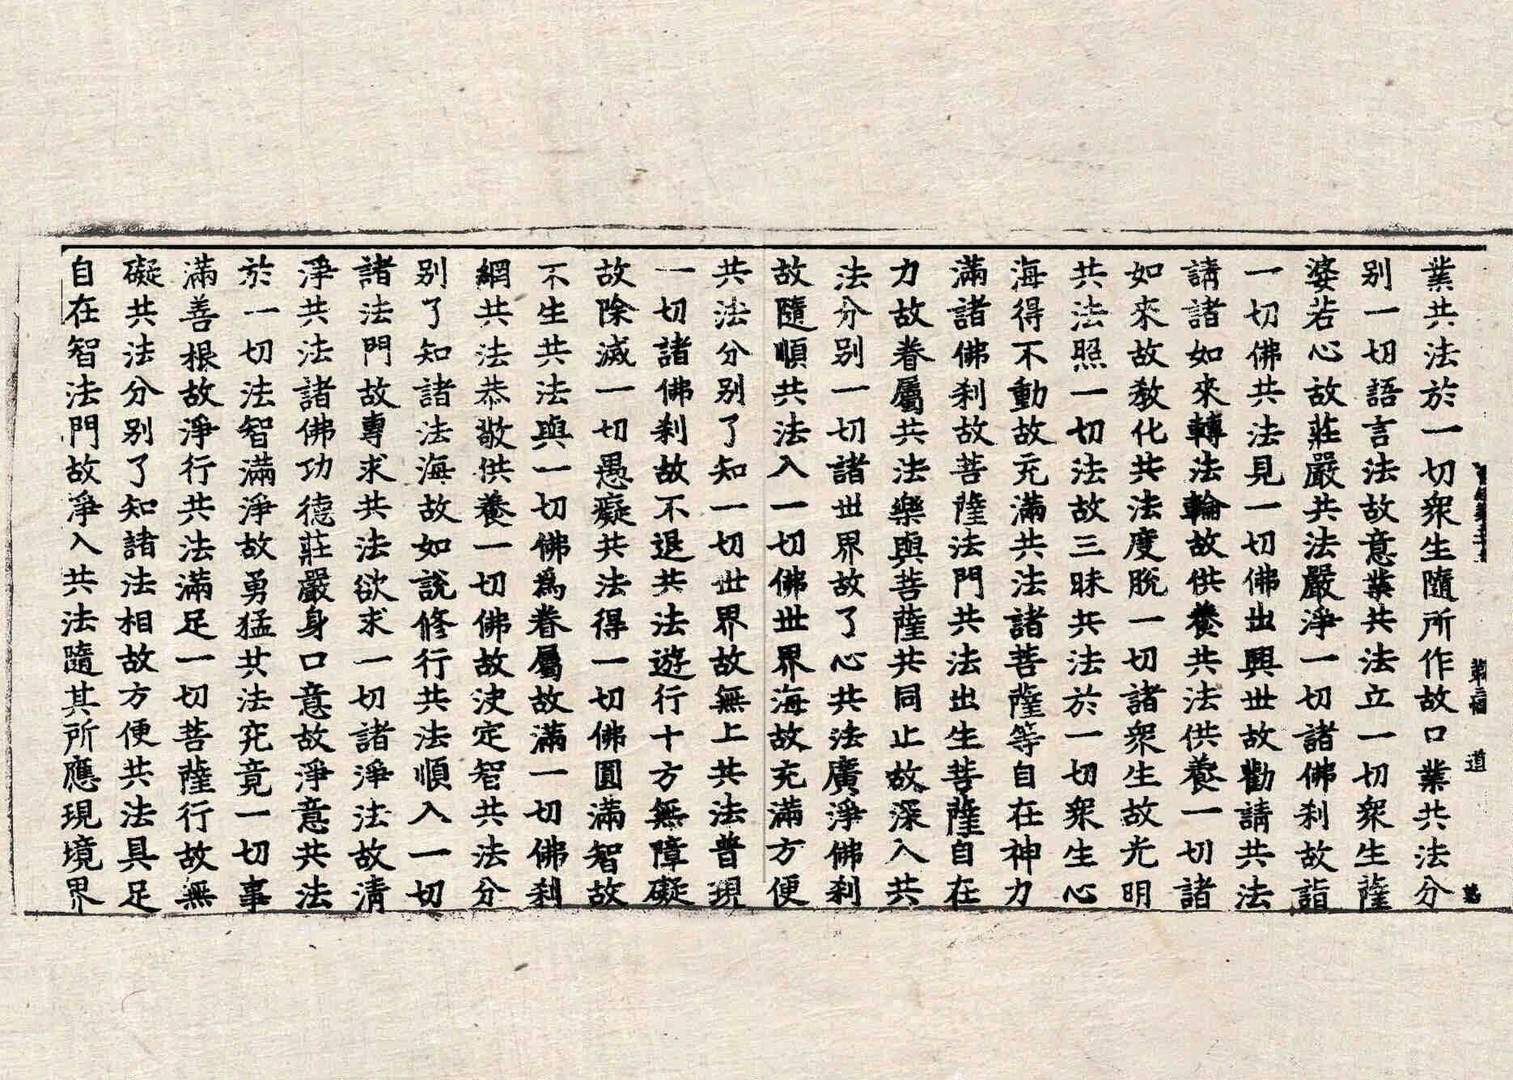 業共法於一切衆生隨所作故口業共法分
别一切語言法故意業共法立一切衆生薩
婆若心故莊嚴共法嚴淨一切諸佛刹故詣
一切佛共法見一切佛出興世故勸請共法
請諸如來轉法輪故供養共法供養一切諸
如來故教化共法度脫一切諸衆生故光明
共法照一切法故三昧共法於一切衆生心
海得不動故充滿共法諸菩薩等自在神力
滿諸佛刹故菩薩法門共法出生菩薩自在
力故眷屬共法樂與菩薩共同止故深入共
法分别一切諸世界故了心共法廣淨佛刹
故隨順共法入一切佛世界海故充滿方便
共法分别了知一切世界故無上共法普現
一切諸佛刹故不退共法遊行十方無障礙
故除滅一切愚癡共法得一切佛圓滿智故
不生共法與一切佛爲眷屬故滿一切佛刹
網共法恭敬供養一切佛故决定智共法分
别了知諸法海故如說修行共法順入一切
諸法門故專求共法欲求一切諸淨法故清
淨共法諸佛功德莊嚴身口意故淨意共法
於一切法智滿淨故勇猛共法究竟一切事
滿善根故淨行共法滿足一切菩薩行故無
礙共法分别了知諸法相故方便共法具足
自在智法門故淨入共法隨其所應現境界
道